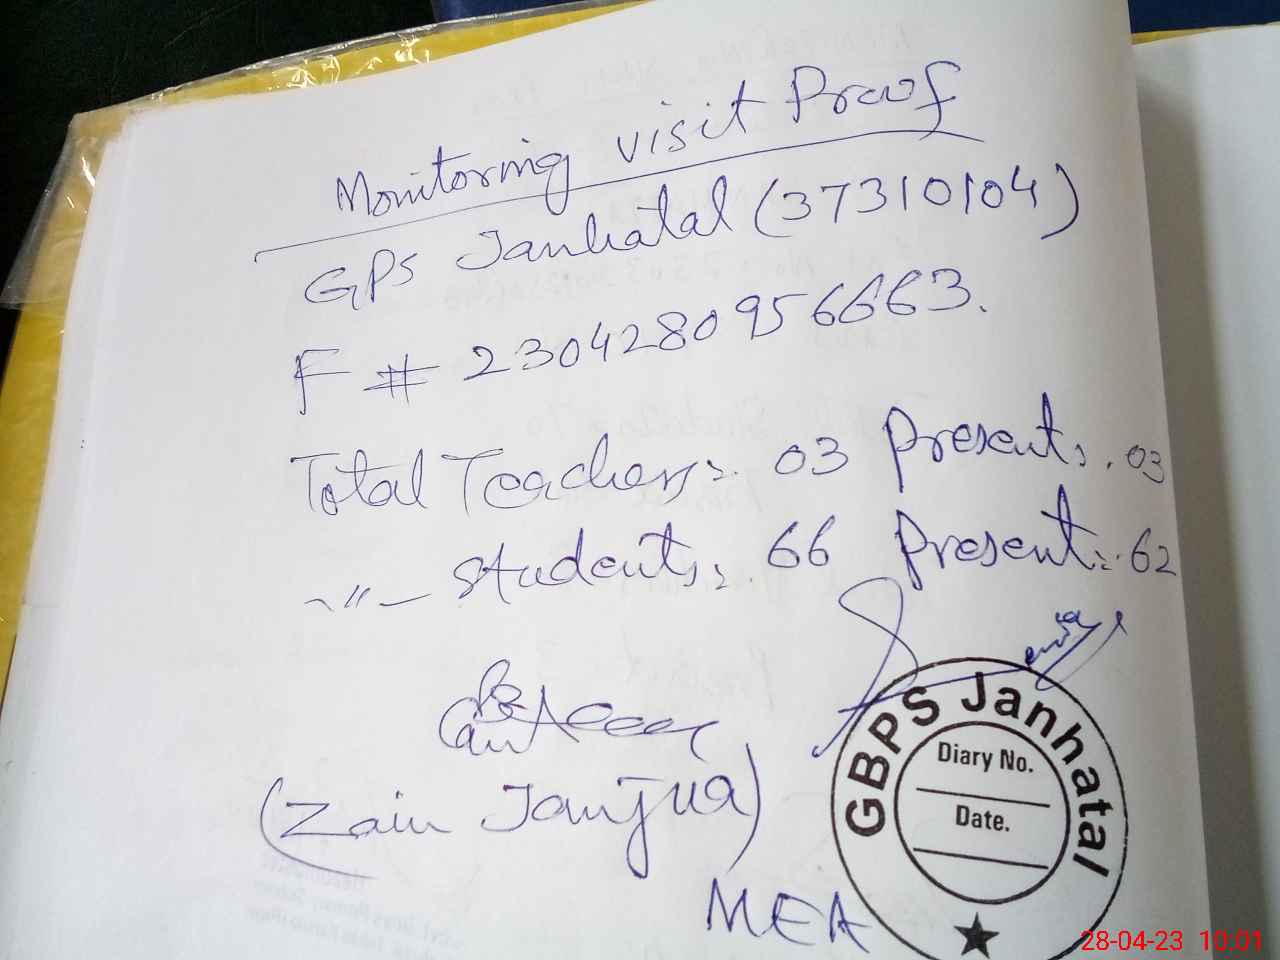 Monitoring visit Proof
GPS Janhatal (37310104)
F # 2304280956663.
Total Teachers:. 03 Present:. 03
-"- Students:. 66 Present:. 62
(Zain Janjua)
MEA
GBPS Janhatal
Diary No.
Date.
28-04-23 10:01